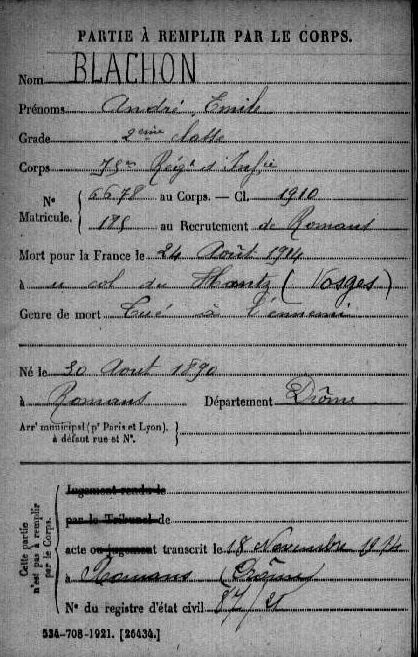 PARTIE À REMPLIR PAR LE CORPS.
Nom BLACHON
Prénoms André Emile
Grade 2ème classe
Corps 75e Régt d'Infie
N° Matricule. { 6678 au Corps. — Cl. 1910
185 au Recrutement de Romans
Mort pour la France le 24 Août 1914
à u col du Hantz (Vosges)
Genre de mort Tué à l'ennemi
Né le 30 Aout 1890
à Romans Département Drôme
Arrt municipal (pr Paris et Lyon), à défaut rue et N°. }
Cette partie n'est pas à remplir par le Corps.
Jugement rendu le
par le Tribunal de
acte ou jugement transcrit le 18 Novembre
à Romans (Drôme)
N° du registre d'état civil 87/21
534-708-1921. [26434.]